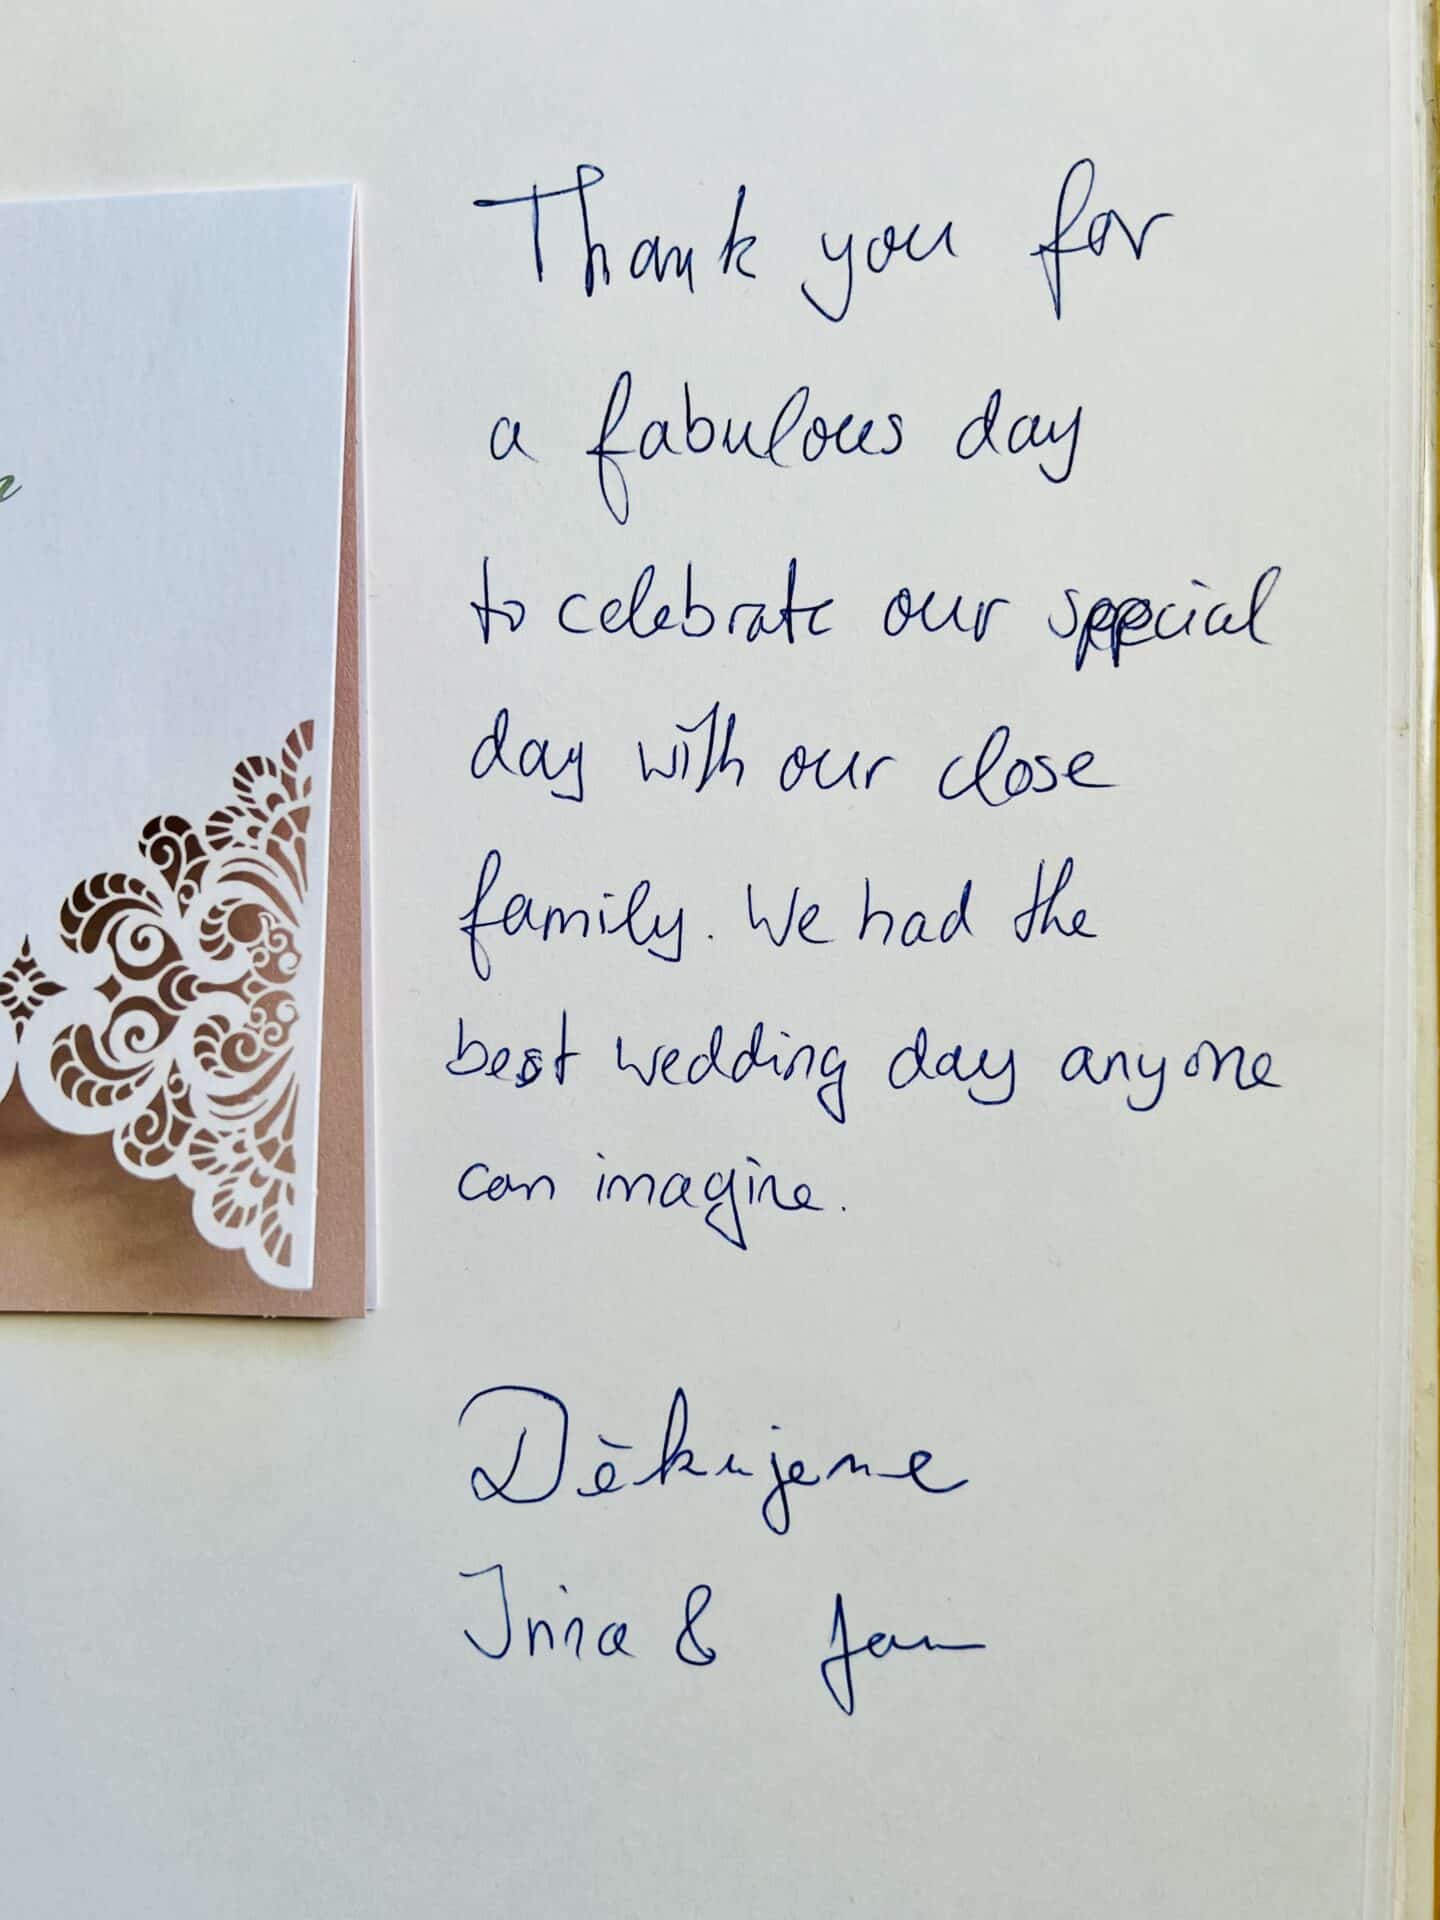 Thank you for
a fabulous day
to celebrate our special
day with our close
family. We had the
best wedding day anyone
can imagine.
Děkujeme
Irina & Jan